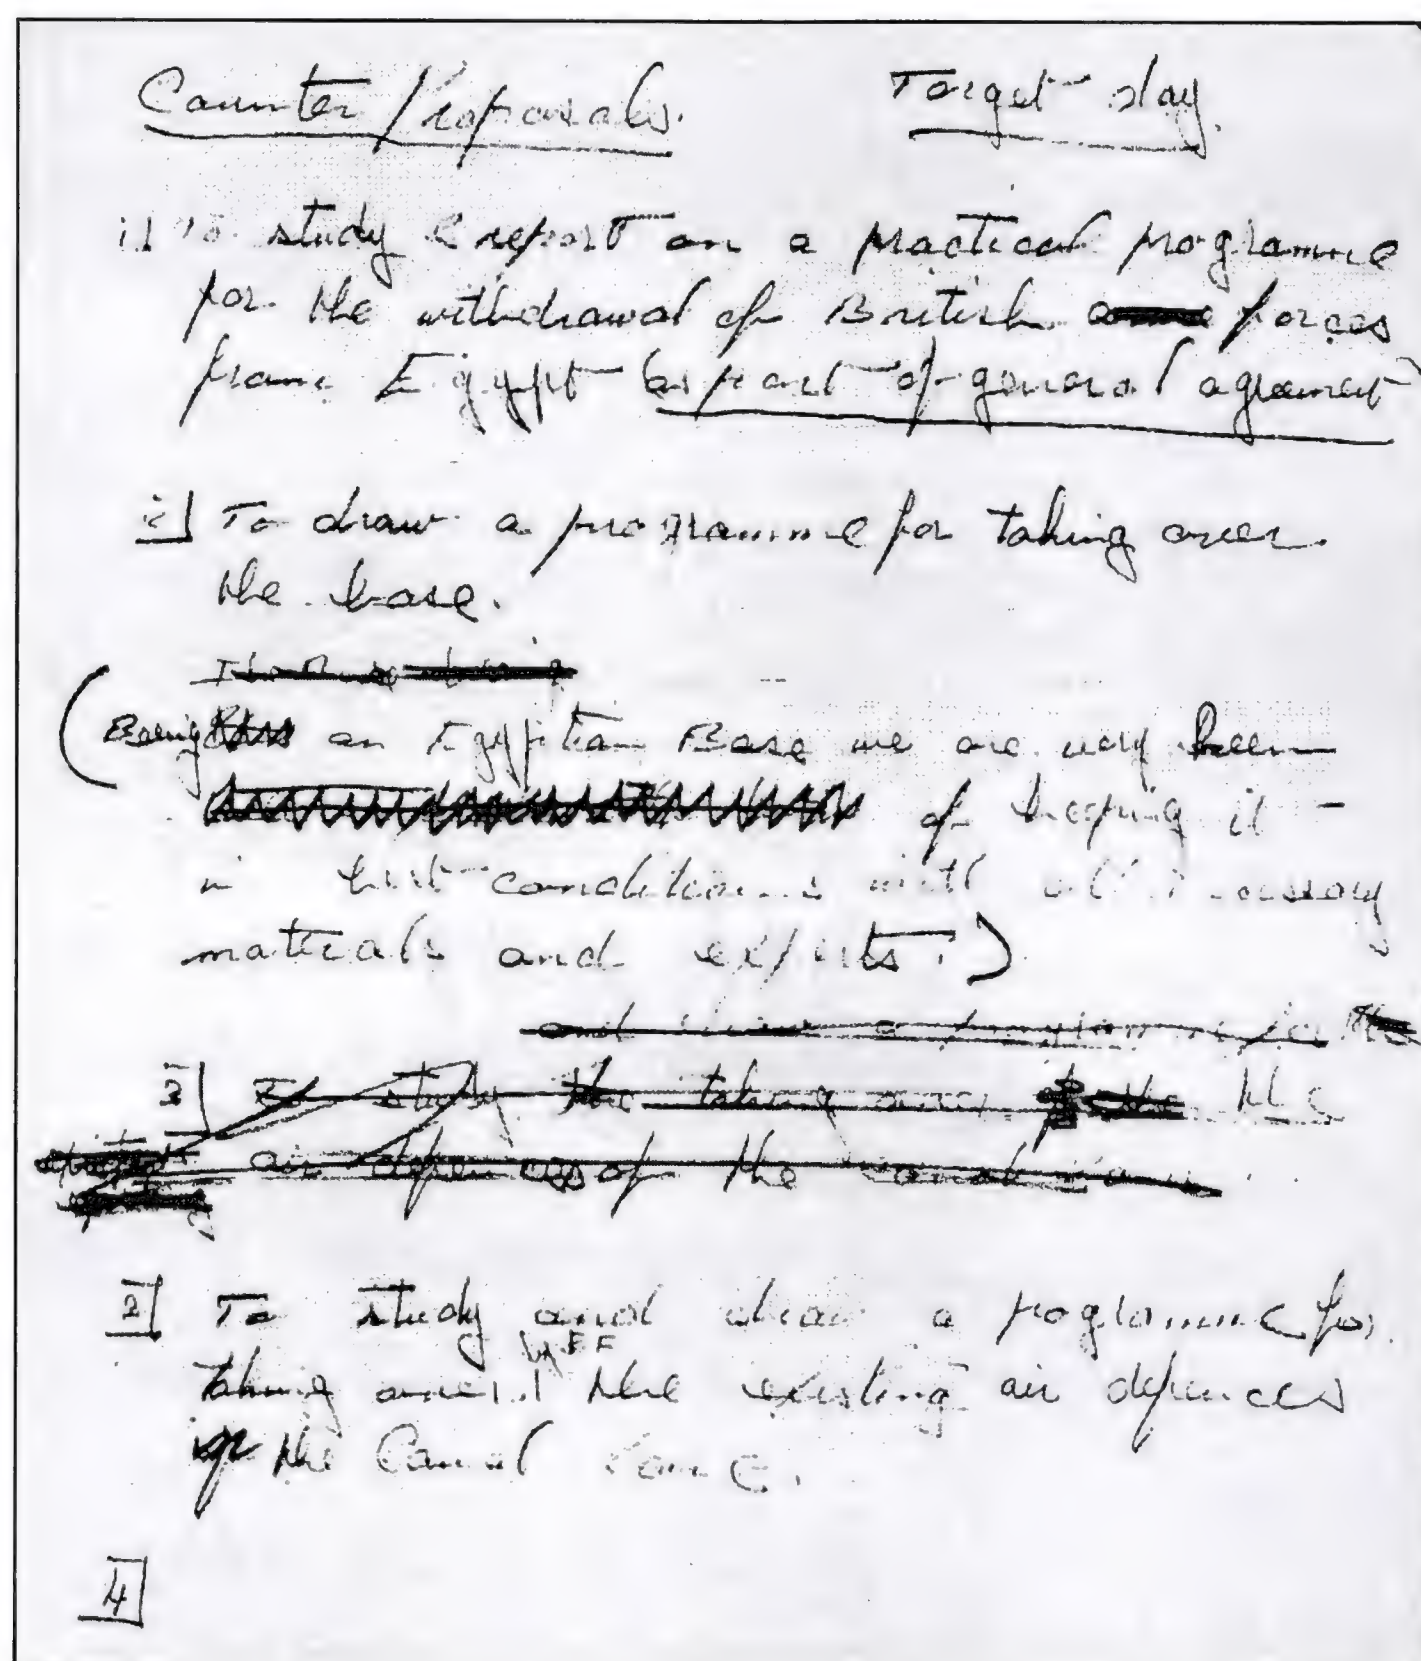 Counter Proposals. Target day.
1] To study & report on a practical programme
for the withdrawal of British forces
from Egypt (as part of general agreement)
2] To draw a programme for taking over
the base.
(Being an Egyptian Base we are very keen
of keeping it
in best conditions with all necessary
materials and experts.)
3] To study the taking over of the the
air defences of the Canal Zone
3] To study and draw a programme for
taking over the existing air defences
of the Canal Zone.
4]